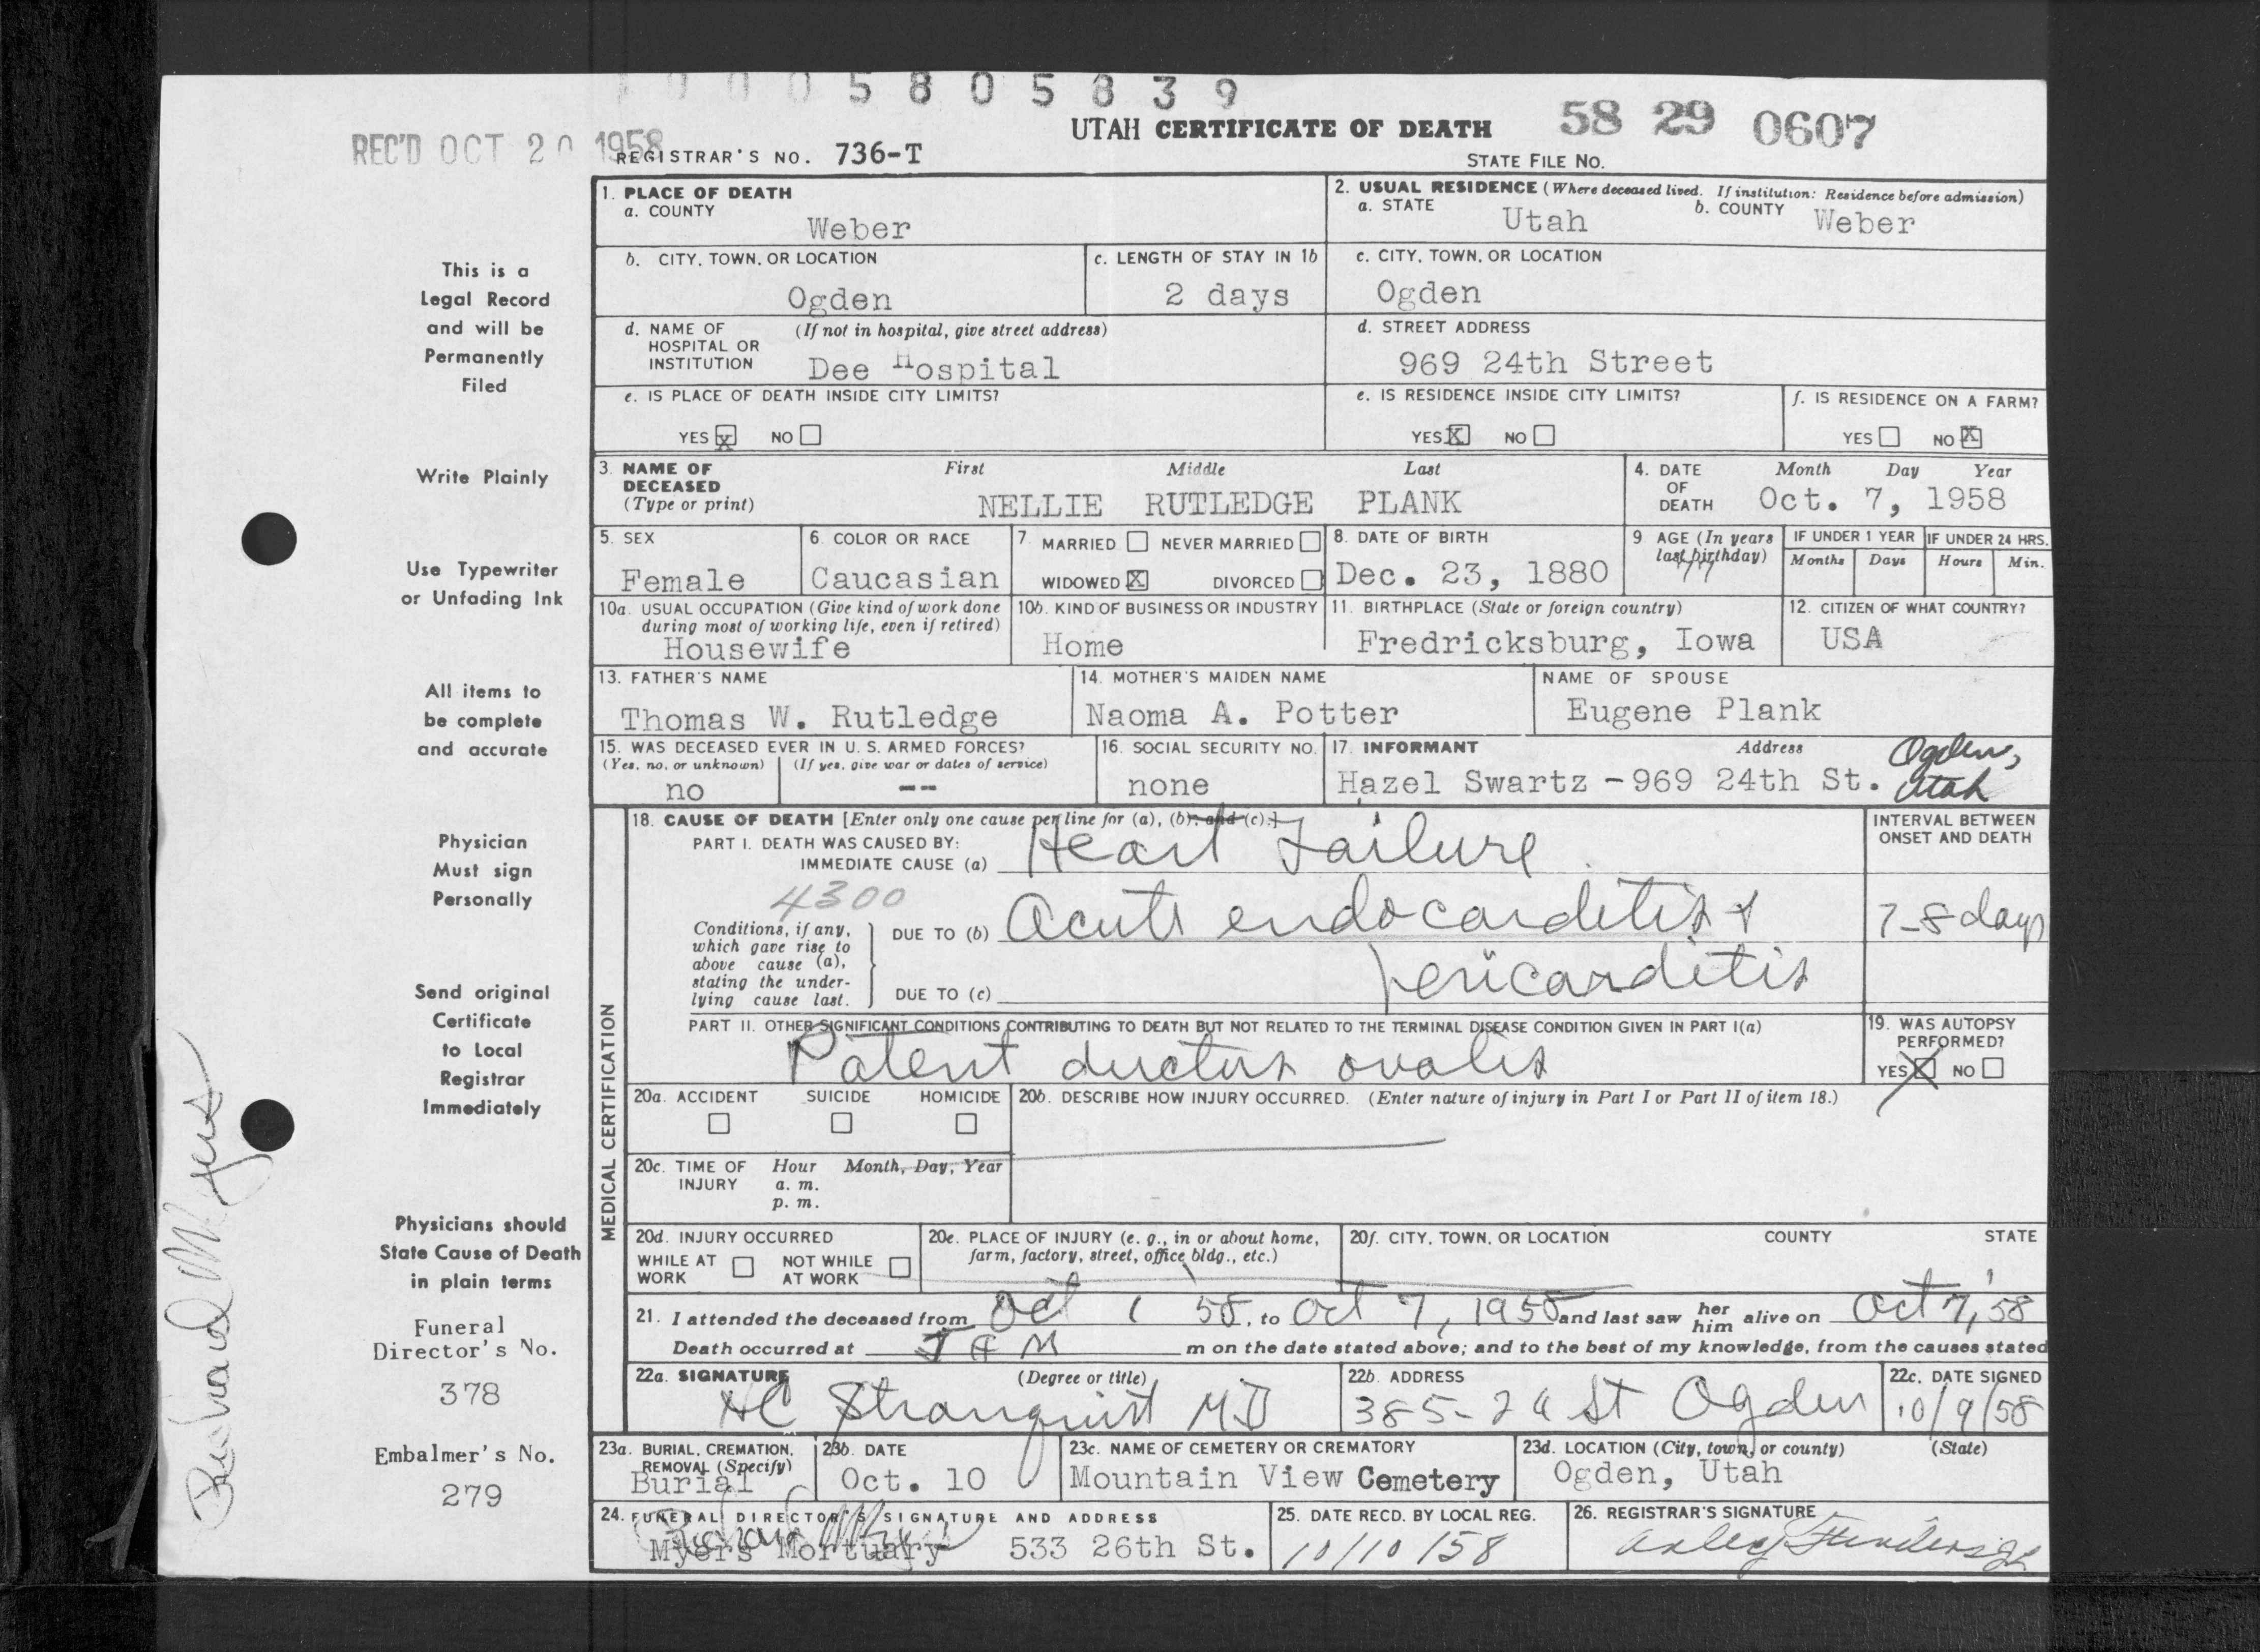 0005805839
REC'D OCT 20 1958
REGISTRAR'S NO. 736-T
UTAH CERTIFICATE OF DEATH
58 29 0607
STATE FILE NO.
This is a
Legal Record
and will be
Permanently
Filed
Write Plainly
Use Typewriter
or Unfading Ink
All items to
be complete
and accurate
Physician
Must sign
Personally
Send original
Certificate
to Local
Registrar
Immediately
Physicians should
State Cause of Death
in plain terms
Funeral
Director's No.
378
Embalmer's No.
279
1. PLACE OF DEATH
a. COUNTY
Weber
2. USUAL RESIDENCE (Where deceased lived. If institution: Residence before admission)
a. STATE Utah b. COUNTY Weber
b. CITY, TOWN, OR LOCATION
Ogden
c. LENGTH OF STAY IN 1b
2 days
c. CITY, TOWN, OR LOCATION
Ogden
d. NAME OF (If not in hospital, give street address)
HOSPITAL OR
INSTITUTION Dee Hospital
d. STREET ADDRESS
969 24th Street
e. IS PLACE OF DEATH INSIDE CITY LIMITS?
YES X NO
e. IS RESIDENCE INSIDE CITY LIMITS?
YES X NO
f. IS RESIDENCE ON A FARM?
YES NO X
3. NAME OF First Middle Last
DECEASED
(Type or print) NELLIE RUTLEDGE PLANK
4. DATE Month Day Year
OF
DEATH Oct. 7, 1958
5. SEX
Female
6. COLOR OR RACE
Caucasian
7. MARRIED NEVER MARRIED
WIDOWED X DIVORCED
8. DATE OF BIRTH
Dec. 23, 1880
9 AGE (In years
last birthday)
77
IF UNDER 1 YEAR
Months Days
IF UNDER 24 HRS.
Hours Min.
10a. USUAL OCCUPATION (Give kind of work done
during most of working life, even if retired)
Housewife
10b. KIND OF BUSINESS OR INDUSTRY
Home
11. BIRTHPLACE (State or foreign country)
Fredricksburg, Iowa
12. CITIZEN OF WHAT COUNTRY?
USA
13. FATHER'S NAME
Thomas W. Rutledge
14. MOTHER'S MAIDEN NAME
Naoma A. Potter
NAME OF SPOUSE
Eugene Plank
15. WAS DECEASED EVER IN U. S. ARMED FORCES?
(Yes, no, or unknown) (If yes, give war or dates of service)
no --
16. SOCIAL SECURITY NO.
none
17. INFORMANT Address
Hazel Swartz - 969 24th St. Ogden,
Utah
MEDICAL CERTIFICATION
18. CAUSE OF DEATH [Enter only one cause per line for (a), (b), and (c).]
PART I. DEATH WAS CAUSED BY:
IMMEDIATE CAUSE (a) Heart Failure
INTERVAL BETWEEN
ONSET AND DEATH
4300
Conditions, if any,
which gave rise to
above cause (a),
stating the under-
lying cause last.
DUE TO (b) Acute endocarditis &
7-8 days
pericarditis
DUE TO (c)
PART II. OTHER SIGNIFICANT CONDITIONS CONTRIBUTING TO DEATH BUT NOT RELATED TO THE TERMINAL DISEASE CONDITION GIVEN IN PART I(a)
Patent ductus ovalis
19. WAS AUTOPSY
PERFORMED?
YES X NO
20a. ACCIDENT SUICIDE HOMICIDE
20b. DESCRIBE HOW INJURY OCCURRED. (Enter nature of injury in Part I or Part II of item 18.)
20c. TIME OF Hour Month, Day, Year
INJURY a. m.
p. m.
20d. INJURY OCCURRED
WHILE AT NOT WHILE
WORK AT WORK
20e. PLACE OF INJURY (e. g., in or about home,
farm, factory, street, office bldg., etc.)
20f. CITY, TOWN, OR LOCATION COUNTY STATE
21. I attended the deceased from Oct 1 58, to Oct 7, 1958 and last saw her him alive on Oct 7, 58
Death occurred at M m on the date stated above; and to the best of my knowledge, from the causes stated
22a. SIGNATURE (Degree or title)
HC Stranquist MD
22b. ADDRESS
385-24 St Ogden
22c. DATE SIGNED
10/9/58
23a. BURIAL, CREMATION,
REMOVAL (Specify)
Burial
23b. DATE
Oct. 10
23c. NAME OF CEMETERY OR CREMATORY
Mountain View Cemetery
23d. LOCATION (City, town, or county) (State)
Ogden, Utah
24. FUNERAL DIRECTOR'S SIGNATURE AND ADDRESS
Myers Mortuary 533 26th St.
25. DATE RECD. BY LOCAL REG.
10/10/58
26. REGISTRAR'S SIGNATURE